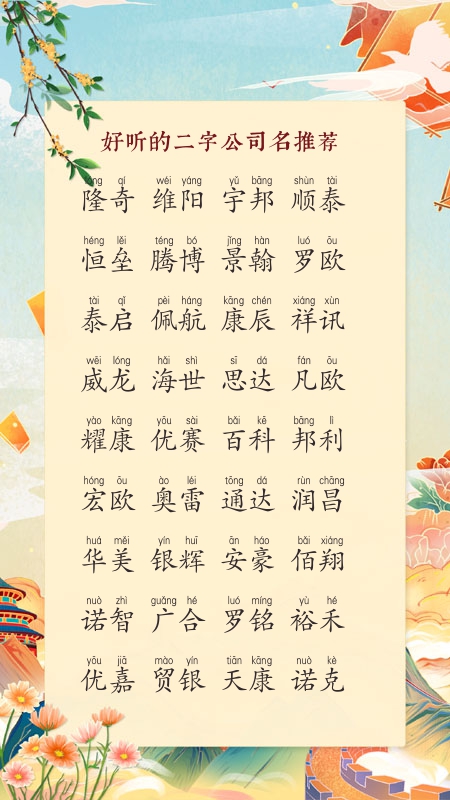 好听的二字公司名推荐
lóng qí wéi yáng yǔ bāng shùn tài
隆奇 维阳 宇邦 顺泰
héng lěi téng bó jǐng hàn luó ōu
恒垒 腾博 景翰 罗欧
tài qǐ pèi háng kāng chén xiáng xùn
泰启 佩航 康辰 祥讯
wēi lóng hǎi shì sī dá fán ōu
威龙 海世 思达 凡欧
yào kāng yōu sài bǎi kē bāng lì
耀康 优赛 百科 邦利
hóng ōu ào léi tōng dá rùn chāng
宏欧 奥雷 通达 润昌
huá měi yín huī ān háo bǎi xiáng
华美 银辉 安豪 佰翔
nuò zhì guǎng hé luó míng yù hé
诺智 广合 罗铭 裕禾
yōu jiā mào yín tiān kāng nuò kè
优嘉 贸银 天康 诺克